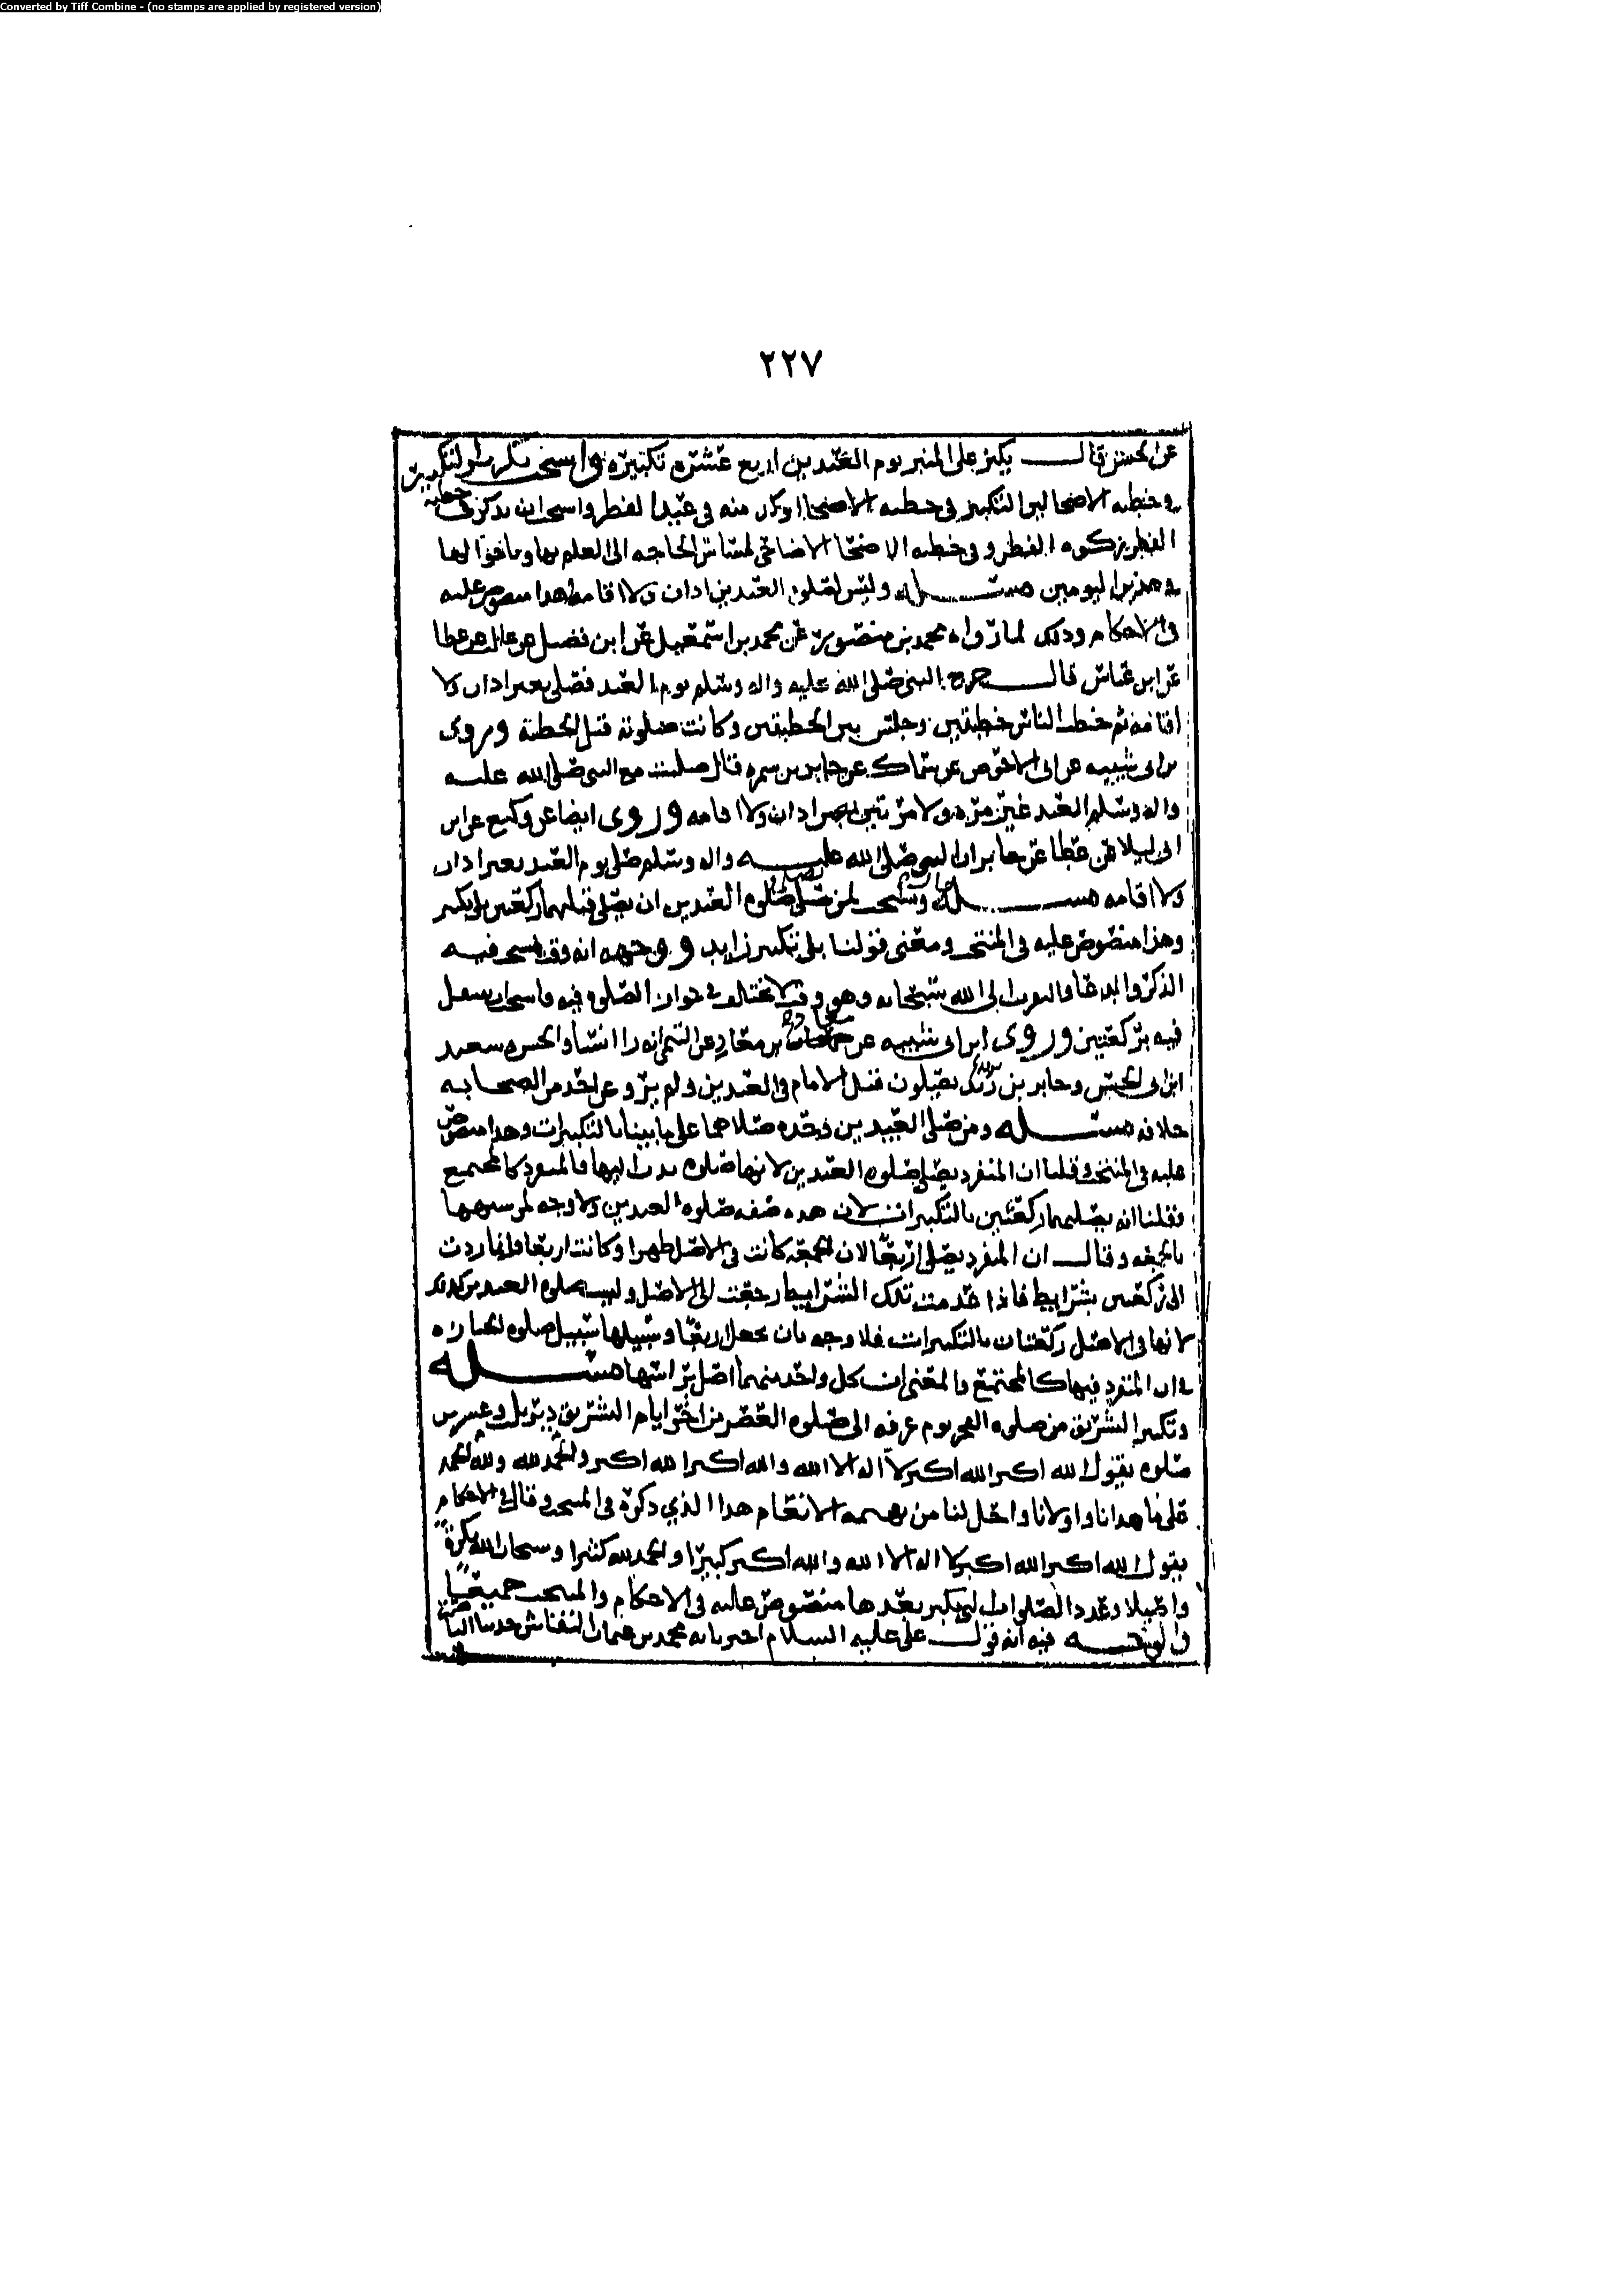 Converted by Tiff Combine - (no stamps are applied by registered version)
٢٢٧
عن الحسن قال يكبر على المنبر يوم العيدين اربع عشرة تكبيرة واستحب التكبير
في خطبة الاضحا لان التكبير في خطبة الاضحا اوكد منه في عيد الفطر واستحب ان يذكر في خطبة
الفطر زكوة الفطر وفي خطبة الاضحا الاضاحي لمساس الحاجة الى العلم بها
في هذين اليومين مسئلة وليس لصلوة العيدين اذان ولا اقامة وهذا منصوص عليه
في الاحكام وذلك لما رواه محمد بن منصور عن محمد بن اسمعيل عن ابن فضيل عن عطا
عن ابن عباس قال خرج النبي صلى الله عليه واله وسلم يوم العيد فصلى بغير اذان ولا
اقامة ثم خطب الناس خطبتين وجلس بين الخطبتين وكانت صلوته قبل الخطبة وروى
بن ابي شيبه عن ابي الاحوص عن سماك عن جابر بن سمره قال صليت مع النبي صلى الله عليه
واله وسلم العيد غير مرة ولا مرتين بغير اذان ولا اقامه وروى ايضا عن وكيع عن ابن
ابي ليلا عن عطا عن جابر ان النبي صلى الله عليه واله وسلم صلى يوم العيد بغير اذان
ولا اقامه مسئلة ويستحب لمن صلى صلوة العيدين ان يصلي قبلهما ركعتين بلا تكبير
وهذا منصوص عليه في المنتخب ومعنى قولنا بلا تكبير زايد ووجهه انه وقت يستحب فيه
الذكر والدعا والتقرب الى الله سبحانه وهو وقت لا يختلف في جواز الصلوة فيه فاستحب ان يتنفل
فيه بركعتين وروى ابن ابي شيبه عن معاذ بن معاذ عن التيمي انه را انسا والحسن وسعيد
ابن ابي الحسن وجابر بن زيد يصلون قبل الامام في العيدين ولم يرو عن احد من الصحابه
خلافه مسئلة ومن صلى العيدين وحده صلاهما على ما بينا بالتكبيرات وهذا منصوص
عليه في المنتخب وقلنا ان المنفرد يصلي صلوة العيدين لانها صلوة ندب اليها فالمنفرد كالمجتمع
وقلنا انه يصليهما ركعتين بالتكبيرات لان هذه صفه صلوة العيدين ولا وجه لمن شبهها
بالجمعه وقال ان المنفرد يصلي اربعا لان الجمعه كانت في الاصل ظهرا وكانت اربعا وانما ردت
الى ركعتين بشرايط فاذا عدمت تلك الشرايط رجعت الى الاصل وليست صلوة العيدين كذلك
لانها في الاصل ركعتان بالتكبيرات فلا وجه بان تجعل اربعا وسبيلها سبيل صلوة الجنازه
في ان المنفرد فيها كالمجتمع والمعنى ان كل واحد منهما اصل براسها مسئلة
وتكبير التشريق من صلوة الفجر يوم عرفه الى صلوة العصر من اخر ايام التشريق دبر ثلث وعشرين
صلوة يقول الله اكبر الله اكبر لا اله الا الله والله اكبر الله اكبر والحمد لله
على ما هدانا واولانا واحل لنا من بهيمة الانعام هذا الذي ذكره في المنتخب وقال في الاحكام
يقول الله اكبر الله اكبر لا اله الا الله والله اكبر كبيرا والحمد لله كثيرا وسبحان الله بكرة
واصيلا وعدد الصلوات التي يكبر بعدها منصوص عليه في الاحكام والمنتخب جميعا
والوجه فيه انه قول علي عليه السلام اخبرنا به محمد بن عثمان النقاش حدثنا الناصر